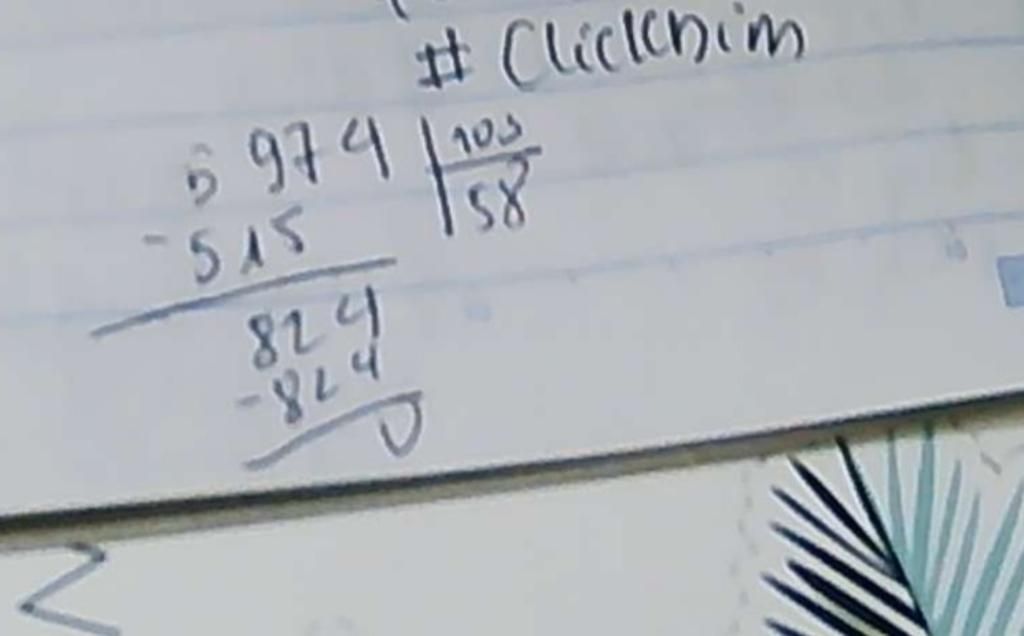 # Clickbim
5974 103
- 515 58
824
- 824
0